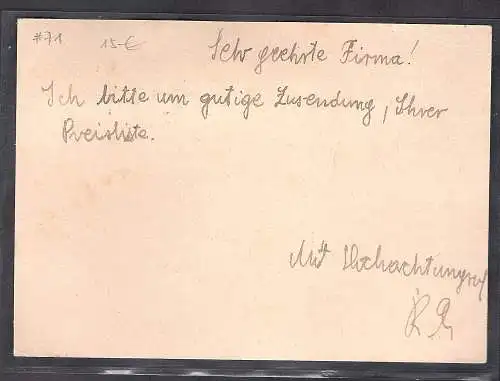 #71 15-€
Sehr geehrte Firma!
Ich bitte um gutige Zusendung, Ihrer
Preisliste.
Mit Hochachtungsvoll